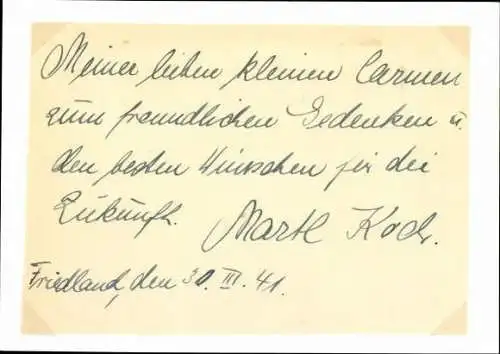 Meiner lieben kleinen Carmen
zum freundlichen Gedenken u.
den besten Wünschen für die
Zukunft. Martl Koch.
Friedland, den 30. III. 41.